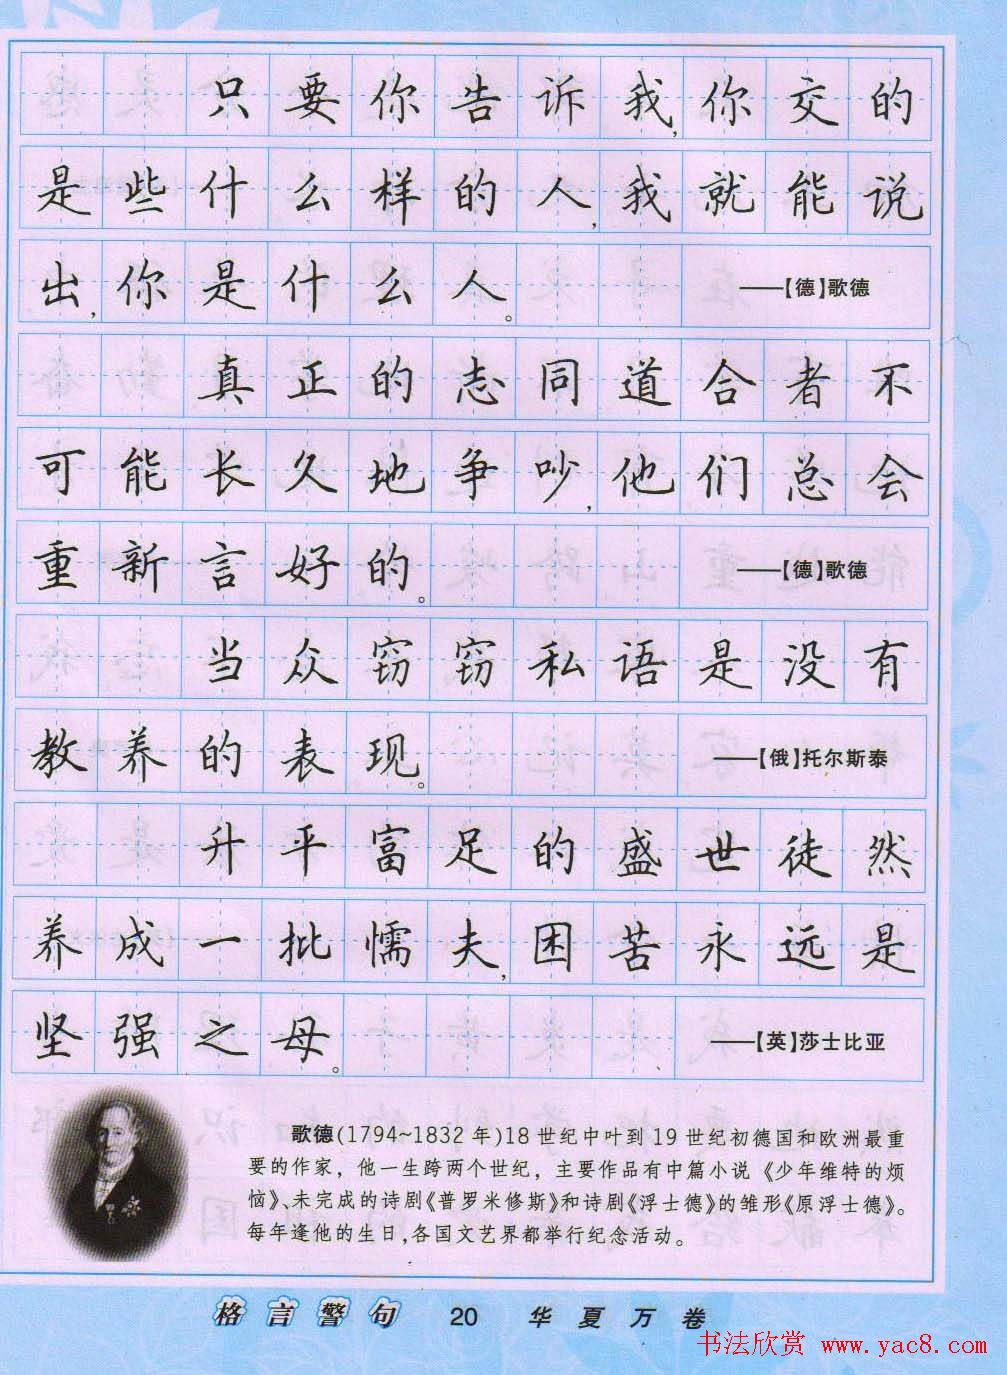 只要你告诉我,你交的
是些什么样的人,我就能说
出,你是什么人。 ——【德】歌德
真正的志同道合者不
可能长久地争吵,他们总会
重新言好的。 ——【德】歌德
当众窃窃私语是没有
教养的表现。 ——【俄】托尔斯泰
升平富足的盛世徒然
养成一批懦夫,困苦永远是
坚强之母。 ——【英】莎士比亚
歌德(1794~1832年)18世纪中叶到19世纪初德国和欧洲最重
要的作家，他一生跨两个世纪，主要作品有中篇小说《少年维特的烦
恼》、未完成的诗剧《普罗米修斯》和诗剧《浮士德》的雏形《原浮士德》。
每年逢他的生日,各国文艺界都举行纪念活动。
格言警句 20 华夏万卷
书法欣赏 www.yac8.com